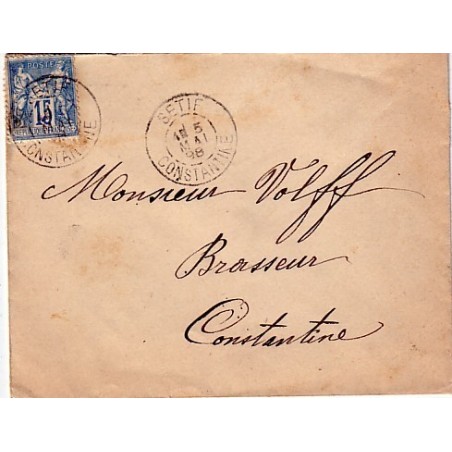 POSTE
15
SETIF
CONSTANTINE
SETIF
5
MAI
98
CONSTANTINE
Monsieur Volff
Brasseur
Constantine